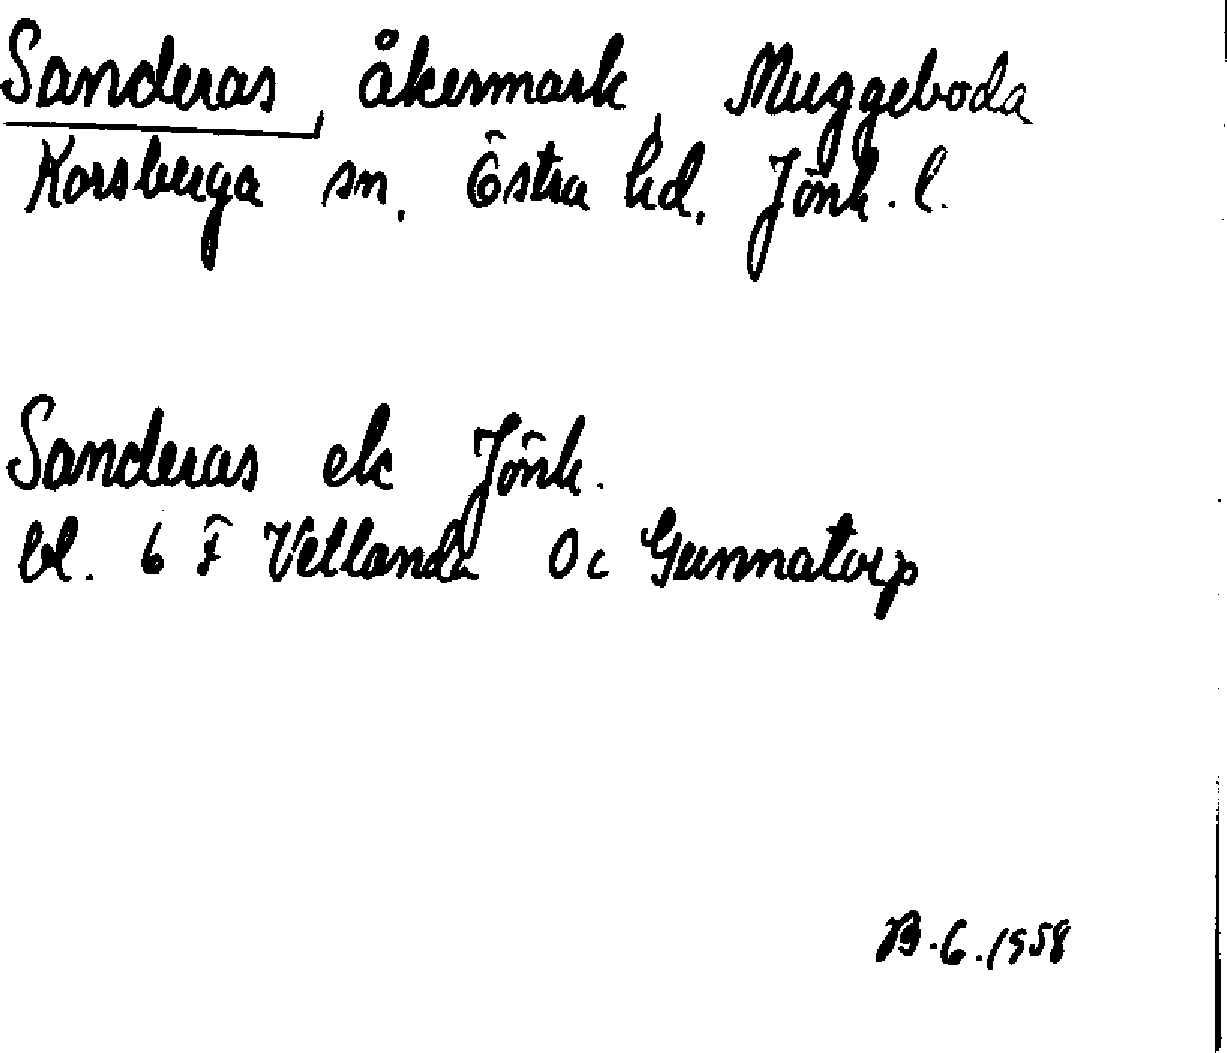 Sanderas, åkermark, Muggeboda
Korsberga sn, Östra hd, Jönk. l.
Sanderas ek Jönk.
bl. 6 F Vetlanda 0c Gunnatorp
B.G.1958